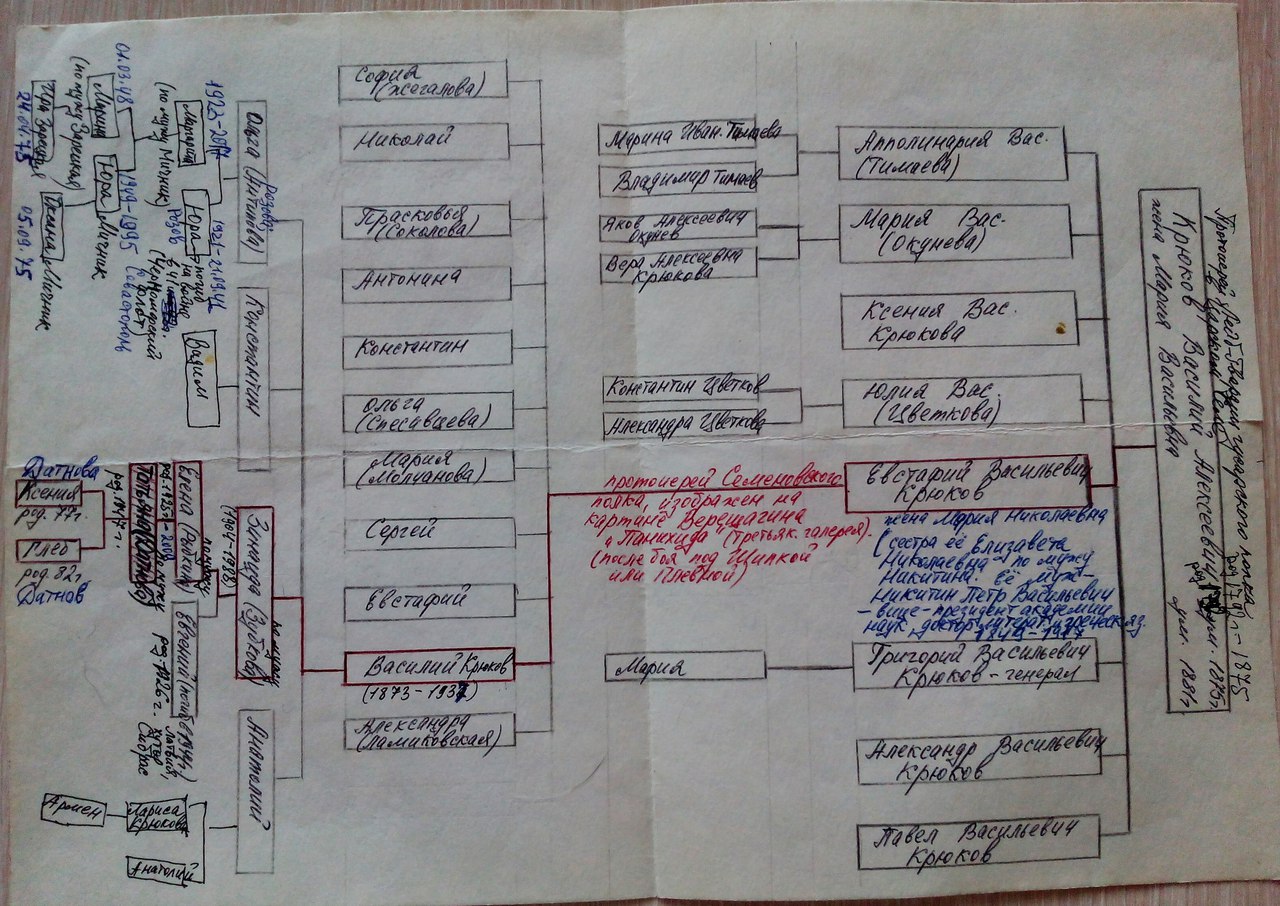 Протоиерей Лейб-Гвардии гусарского полка
Крюков Василий Алексеевич
жена Мария Васильевна
ум. 1881г.
Апполинария Вас.
(Тимаева)
Марина Иван. Тимаева
Владимир Тимаев
Мария Вас.
(Окунева)
Яков Алексеевич
Окунев
Вера Алексеевна
Крюкова
Ксения Вас.
Крюкова
Юлия Вас.
(Цветкова)
Константин Цветков
Александра Цветкова
Евстафий Васильевич
Крюков
протоиерей Семеновского
полка, изображен на
картине Верещагина
"Панихида" (третьяк. галерея).
(после боя под Шипкой
или Плевной)
жена Мария Николаевна
(сестра её Елизавета
Николаевна по мужу
Никитина. Её муж-
Никитин Петр Васильевич
- вице-президент академии
наук, доктор литерат. и греческ. яз.
Григорий Васильевич
Крюков - генерал
Мария
Александр Васильевич
Крюков
Павел Васильевич
Крюков
София
(Жегалова)
Николай
Прасковья
(Соколова)
Антонина
Константин
Ольга
(Спесивцева)
Мария
(Молчанова)
Сергей
Евстафий
Василий Крюков
(1873-1937)
Александра
(Ламиковская)
Ольга (Антипова)
Константин
Зинаида (Зубков)
по мужу
(1904-1998)
Анатолий
(по мужу Мичник)
Юра
Розов
Черноморский
флот
Севастополь
Вадим
01.03.48
Марина
(по мужу Зарецкая)
Юра Мичник
1949-1995
24.04.75
Оксана Мичник
05.09.75
Елена
Евгений
Латвия,
хутор
род. 1926г.
род. 1947г.
Датнова
Ксения
род. 77г.
Глеб
род. 82г.
Датнов
Лариса
Крюкова
Армен
Анатолий